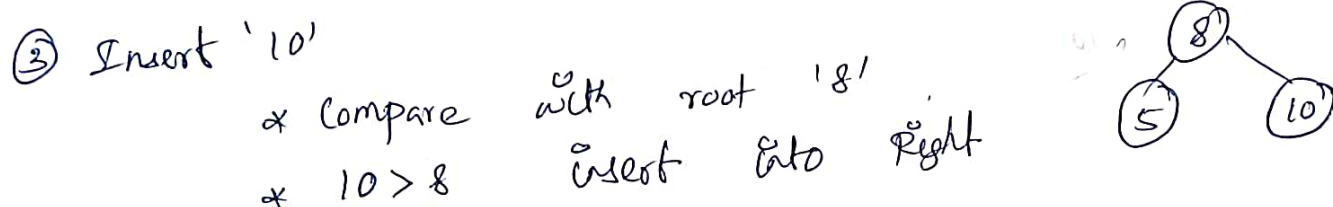 ③ Insert '10'
* Compare with root '8'
* 10 > 8 insert into Right
8
5 10